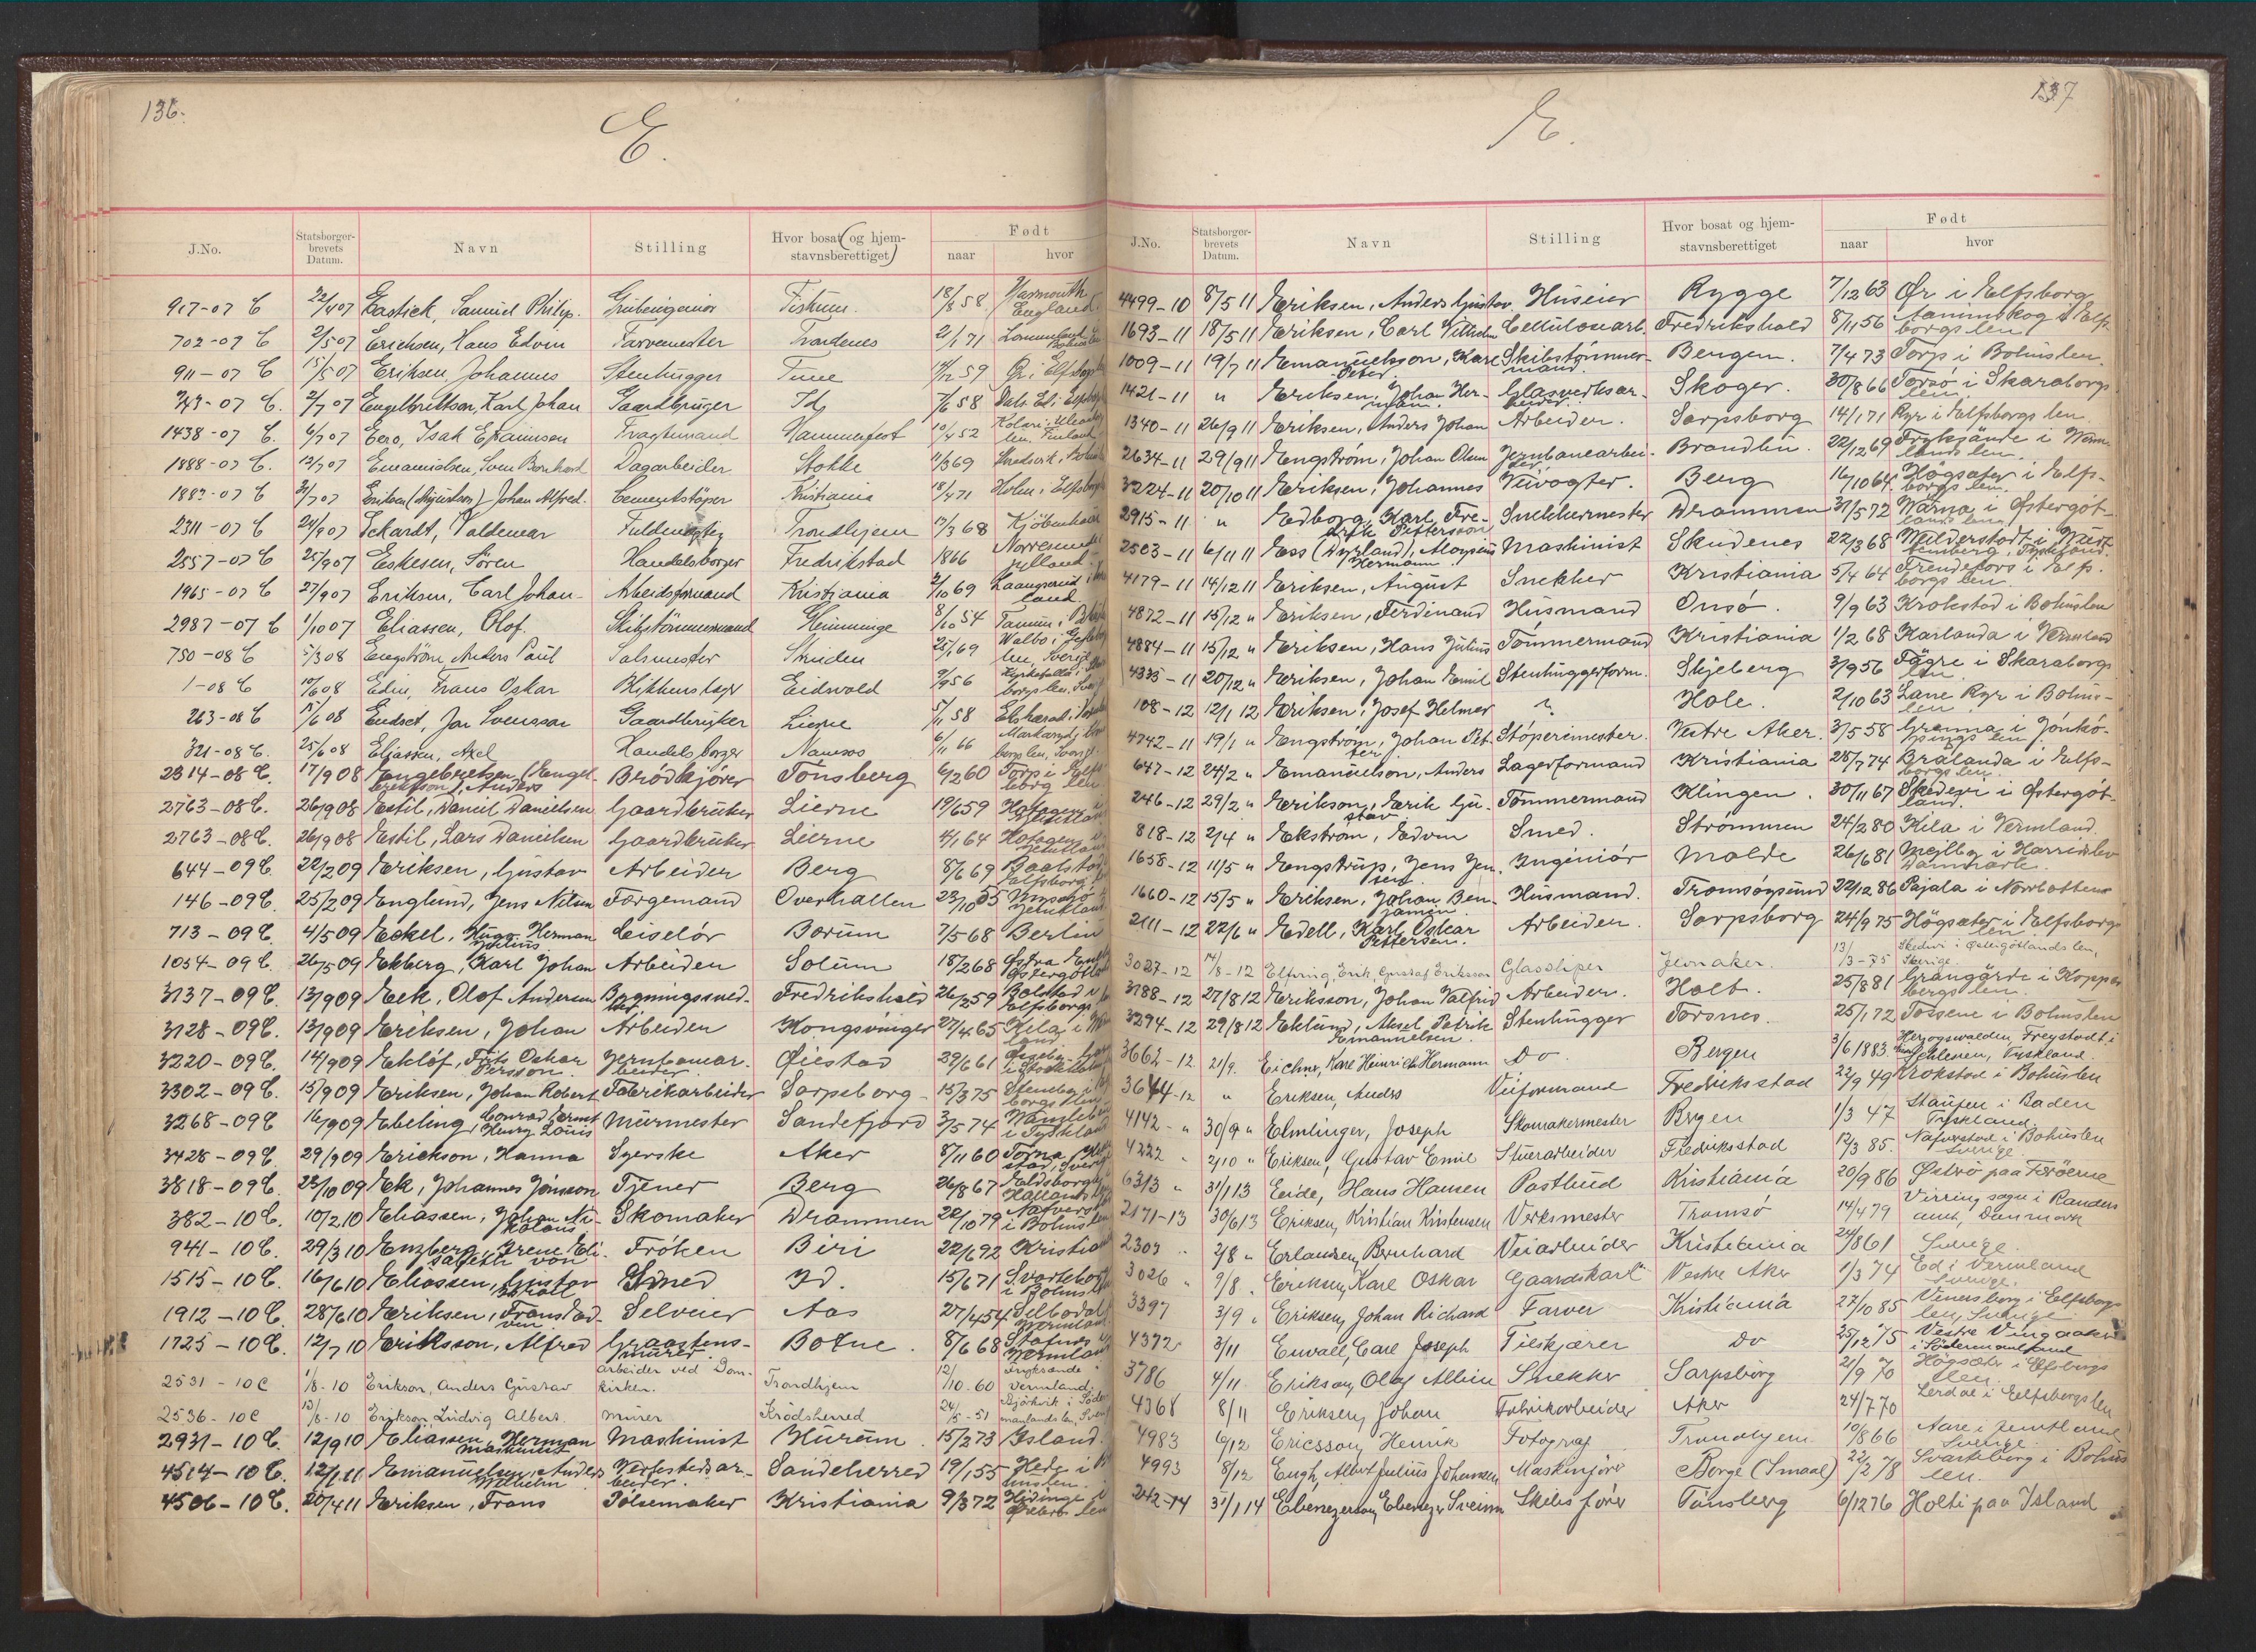 136.
E.
J.No. Statsborger-brevets Datum. Navn Stilling Hvor bosat (og hjem-stavnsberettiget) Født naar hvor
917-07 C 22/4 07 Eastick, Samuel Philip. Grubeingeniør Fiskum. 18/8 58 Yarmouth England
702-07 C 2/5 07 Erichsen, Hans Edvin Farvemester Trondenes 21/1 71
911-07 C 15/5 07 Eriksen, Johannes Stenhugger Tune 14/12 59 Ør i Elfsborgs
743-07 C. 2/7 07 Engelbrektson, Karl Johan Gaardbruger Id 7/6 58 Dals Ed i Elfsborgs
1438-07 C. 6/7 07 Eero, Isak Efraimsen Fragtemand Hammerfest 10/4 52 Kolari i Uleaborg len, Finland
1888-07 C. 12/7 07 Emanuelsen, Sven Bernhard Dagarbeider Stokke 11/3 69
1887-07 C 31/7 07 Eriksen (Agustson) Johan Alfred. Cementstøper Kristiania 18/4 71 Holm i Elfsborgs
2311-07 C 24/9 07 Eckardt, Valdemar Fuldmægtig Trondhjem 17/3 68 Kjøbenhavn
2557-07 C 25/9 07 Eskesen, Søren Handelsborger Fredrikstad 1866 Nørresundby Jylland
1965-07 C 27/9 07 Eriksen, Carl Johan Arbeidsformand Kristiania 2/10 69
2987-07 C 1/10 07 Eliassen, Olof. Skibstømmermand 8/10 54 Tanum i
750-08 C 5/3 08 Engström, Anders Paul Salsmester Strinden 25/1 69 Valbo i Gefleborg len, Sverige
1-08 C 10/6 08 Edin, Frans Oskar Blikkenslager Eidsvold 2/9 56
263-08 C 15/6 08 Endset, Jon Svensson Gaardbruker Lierne 5/11 58
321-08 C. 25/6 08 Eliassen, Axel Handelsborger Namsos 6/11 66
2314-08 C. 17/9 08 Engebretsen (Engelbrektson), Anders Brødkjører Tønsberg 6/2 60 Torp i Elfsborg len
2763-08 C. 26/9 08 Estil, Daniel Danielsen Gaardbruker Lierne 19/6 59 Hotagen i Jemtland
2763-08 C. 26/9 08 Estil, Lars Danielsen Gaardbruker Lierne 4/1 64 Hotagen i Jemtland
644-09 C. 22/2 09 Eriksen, Gustav Arbeider Berg 8/6 69
146-09 C. 25/2 09 Englund, Jens Nilsen Førgemand Overhallen 23/10 55 Jemtland
713-09 C. 4/5 09 Eckel, Hugo Herman Julius Ciselør Borum 7/5 68 Berlin
1054-09 C. 26/5 09 Ekberg, Karl Johan Arbeider Solum 18/2 68 Østra Østergötland
3137-09 C. 13/9 09 Eek, Olof Andersen Bygningssnedker Fredrikshald 26/2 59 Bolstad i Elfsborgs
3128-09 C. 13/9 09 Eriksen, Johan Arbeider Kongsvinger 27/4 65 Kila i Vermland
3220-09 C. 14/9 09 Eklöf, Frits Oskar Persson. Jernbanearbeider Øiestad 29/6 61
3302-09 C. 15/9 09 Eriksen, Johan Robert Fabrikarbeider Sarpsborg 15/3 75
3268-09 C 16/9 09 Ebeling, Conrad Ernst Henry Louis Murmester Sandefjord 3/5 74 Wansleben i Tyskland
3428-09 C. 29/9 09 Erickson, Hanna Syerske Aker 8/11 60
3818-09 C. 23/10 09 Ek, Johannes Jönsson Tjener Berg 26/8 67 Hallands
382-10 C. 10/2 10 Eliassen, Johan Nikolaus Skomaker Drammen 22/10 79 Nafverstad i Bohuslen
941-10 C. 29/3 10 Enzberg, Irene Elisabeth von Frøken Biri 22/6 92 Kristiania
1515-10 C. 16/6 10 Eliassen, Gustav Smed Id. 15/6 71 Svarteborg i Bohuslen
1912-10 C. 28/6 10 Eriksen, Frans Edvin Selveier Aas 27/4 54 Silbodal Vermland
1725-10 C. 12/7 10 Eriksson, Alfred Graastensmurer Botne. 8/6 68 Stafnes i Vermland
2531-10 C 1/8-10 Erikson, Anders Gustav arbeider ved Domkirken. Trondhjem 12/10. 60 Fryksände i Vermland
2536-10 C 13/8-10 Erikson, Ludvig Albert. Murer Krødsherred 24/5-51 Björkvik i Södermanlands len, Sverige
2931-10 C. 12/9 10 Eliassen, Herman Maskinist Hurum. 15/2 73 Island.
4514-10 C. 12/1 11 Emanuelsen, Anders Wilhelm Verkstedsarbeider. Sandeherred 19/1 55 Hede i
4506-10 C. 20/4 11 Eriksen, Frans Pølsemaker Kristiania 9/3 72
137
E.
J.No. Statsborger-brevets Datum. Navn Stilling Hvor bosat og hjem-stavnsberettiget Født naar hvor
4499-10 8/5 11 Eriksen, Anders Gustav Huseier Rygge 7/12 63 Ør i Elfsborg
1693-11 18/5 11 Eriksen, Carl Vilhelm Cellulosearb. Fredrikshald 8/11 56 Aammskog i Elfsborgs len
1009-11 19/7 11 Emanuelsson, Karl Peter Skibstømmermand. Bergen. 7/4 73 Torp i Bohuslen
1421-11 " Eriksen, Johan Herman. Glasverksarbeider. Skoger. 30/8 66 Torsö i Skaraborgs len
1340-11 26/9 11 Eriksen, Anders Johan Arbeider. Sarpsborg 14/1 71 Ryr i Elfsborgs len
2634-11 29/9 11 Engstrøm, Johan Olsen Jernbanearbeider Brandbu. 22/12 69 Fryksände i Wermlands len.
3224-11 20/10 11 Eriksen, Johannes Veivogter. Berg 16/10 64 Högsäter i Elfsborgs len.
2915-11 " Edborg, Karl Fredrik Pettersson Snekkermester Drammen 31/5 72 Wärna i Østergötlands len
2503-11 6/11 11 Ess (Dyrland), Aloysius Hermann. Maskinist Skudenes 22/3 68 Milderstadt i Würtemberg, Tyskland.
4179-11 14/12 11 Eriksen, August Snekker Kristiania 5/4 64 Frendefors i Elfsborgs len
4872-11 15/12 " Eriksen, Ferdinand Husmand Onsø. 9/9 63 Krokstad i Bohuslen
4884-11 15/12 " Eriksen, Hans Julius Tømmermand Kristiania 1/2 68 Karlanda i Vermland
4335-11 20/12 " Eriksen, Johan Emil Stenhuggerform. Skjeberg 3/9 56 Fägre i Skaraborgs len
108-12 12/1 12 Eriksen, Josef Helmer ? Hole. 2/10 63 Lane Ryr i Bohuslen
4742-11 19/1 " Engstrøm, Johan Petter Støperimester. Vestre Aker. 3/5 58 Grenna i Jönköpings len
647-12 24/2 " Emanuelson, Anders Lagerformand Kristiania 28/7 74 Brålanda i Elfsborgs len
246-12 29/2 " Erikson, Erik Gustav Tømmermand Klingen. 30/11 67 Skedevi i Østergötland.
818-12 2/4 " Ekstrøm, Edvin Smed. Strømmen 24/2 80 Kila i Vermland.
1658-12 11/5 " Engstrup, Jens Jensen Ingeniør Molde 26/6 81 Mejlby i Danmark
1660-12 15/5 " Eriksen, Johan Benjamin Husmand. Tromsøysund 22/12 86 Pajala i Norrbotten
2111-12 22/6 " Edell, Karl Oskar Pettersen. Arbeider. Sarpsborg 24/9 75 Högsäter i Elfsborgs len
3027-12 14/8-12 Elfving, Erik Gustaf Eriksson Glassliper Jevnaker 13/3-75 Skedevi i Østergötlands len, Sverige.
3188-12 27/8 12 Eriksson, Johan Valfrid Arbeider. Holt. 25/8 81 Grangärde i Kopparbergs len
3294-12 29/8 12 Eklund, Aksel Patrik Emanuelsen. Stenhugger Torsnes. 25/1 72 Tossene i Bohuslen
3662-12 21/9. Eichner, Karl Heinrich Hermann Do. Bergen 3/6 1883. Herzogswalden, Freystadt i Schlesien, Tyskland.
3644-12 " Eriksen, Anders Veiformand Fredriksstad 22/9 49 Krokstad i Bohuslen
4142-" 30/9 " Elmlinger, Joseph Skomakermester Bergen 1/3 47 Staufen i Baden Tyskland.
4222 " 2/10 " Eriksen, Gustav Emil Stuerarbeider Fredriksstad 12/3 85. Nafverstad i Bohuslen Sverige.
6313 " 31/1 13 Eeide, Hans Hansen Postbud Kristiania 20/9 86 Østrø paa Færøerne
2171-13 30/6 13 Eriksen, Kristian Kristensen Verksmester Tromsø 14/4 79 Virring sogn i Randers amt, Danmark
2309 " 2/8 " Erlandsen, Bernhard Veiarbeider Kristiania 24/8 61 Sverige.
3026 " 9/8. Eriksen, Karl Oskar Gaardskarl Vestre Aker 1/3 74 Ed i Vermland Sverige.
3397 3/9 " Eriksen, Johan Richard Farver Kristiania 27/10 85 Venersborg i Elfsborgs len, Sverige
4372 3/11 Enwall, Carl Joseph Filskjærer Do 25/12 75 Vestra Vingaaker i Södermanland
3786 4/11 Erikson, Olof Albin Snekker Sarpsborg 21/9 70 Högsäter i Elfsborgs len.
4368 8/11 Eriksen, Johan Fabrikarbeider Aker 24/7 70 Lerdal i Elfsborgs len
4983 6/12 Ericsson, Henrik Fotograf Trondhjem 10/8 66 Aare i Jemtland Sverige.
4993 8/12 Engh, Albert Julius Johansen Maskinfører Borge (Smaal) 22/2 78 Svarteborg i Bohuslen.
242-14 31/1 14 Ebenezerson, Ebenezer Sveinn Skibsfører Tønsberg 6/12 76 Holti paa Island